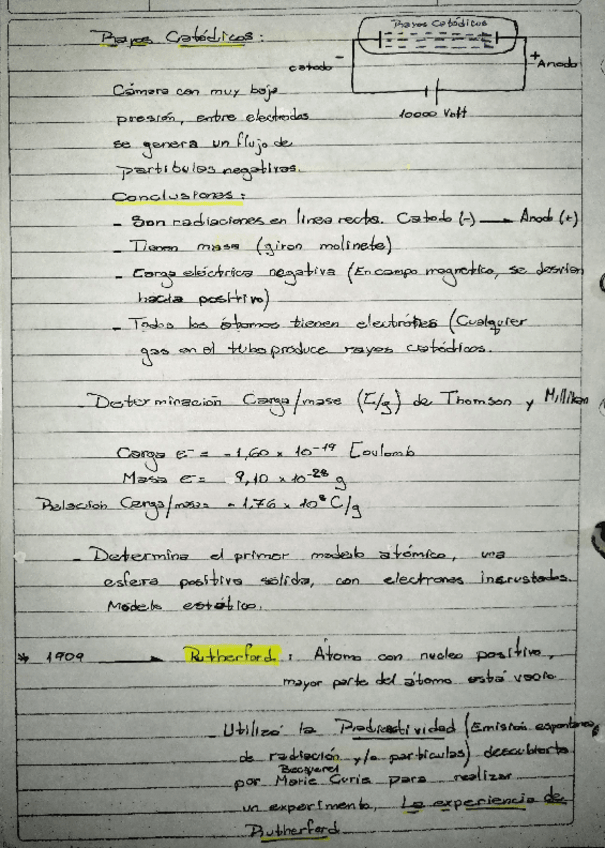 Rayos Catódicos:
Rayos Catódicos
catodo -
+ Anodo
10000 Volt
Cámara con muy baja
presión, entre electrodos
se genera un flujo de
partículas negativas.
Conclusiones:
- Son radiaciones en linea recta. Catodo (-) → Anodo (+)
- Tienen masa (giran molinete)
- Carga eléctrica negativa (En campo magnetico, se desvían
hacia positivo)
- Todos los átomos tienen electrónes (Cualquier
gas en el tubo produce rayos catódicos.
- Determinación Carga/masa (C/g) de Thomson y Millikan
Carga e- = -1,60 x 10^-19 Coulomb
Masa e- = 9,10 x 10^-28 g
Relación Carga/masa = -1,76 x 10^8 C/g
- Determina el primer modelo atómico, una
esfera positiva solida, con electrones incrustados.
Modelo estático.
* 1909 → Rutherford: Átomo con nucleo positivo,
mayor parte del átomo está vacio
- Utilizó la Radioactividad (Emisión espontanea
de radiación y/o partículas) descubierta
Becquerel
por Marie Curie para realizar
un experimento, La experiencia de
Rutherford